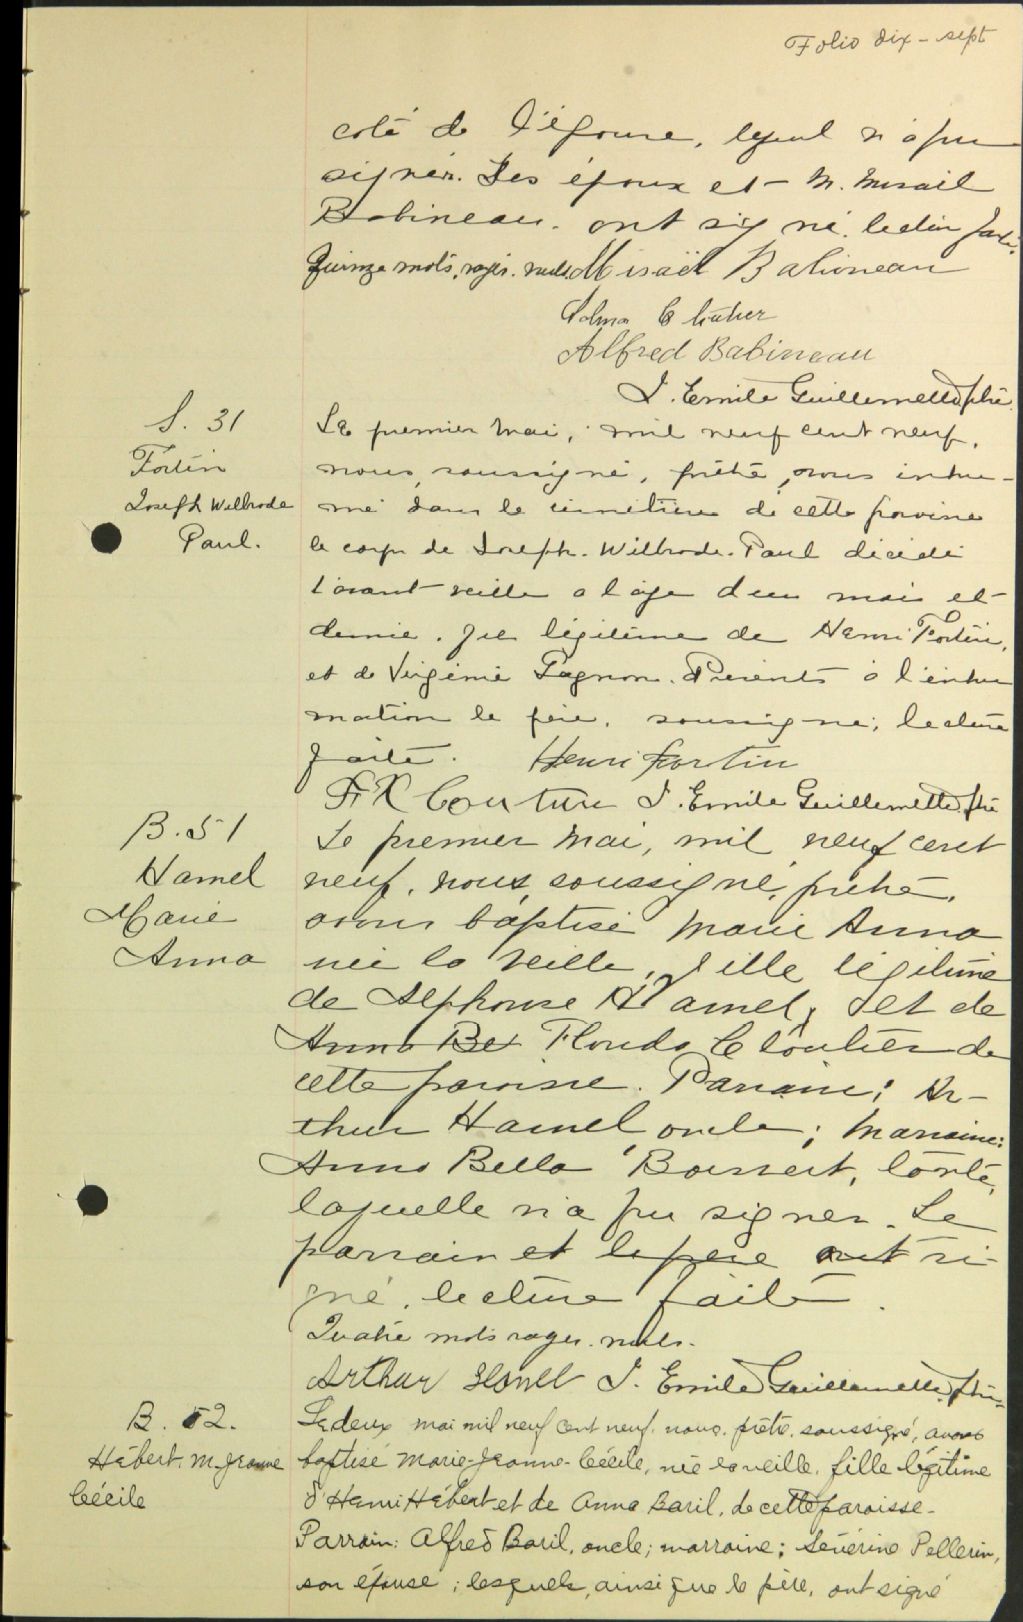 Folio dix-sept
coté de l'épouse, lequel n'a pu
signer. Les époux et M. Misaël
Babineau. ont signé. lecture faite.
Quinze mots rayés nuls. Misaël Babineau
Cloutier
Alfred Babineau
J. Emile Guillemette ptre
S. 31
Fortin
Joseph Wilbrode
Paul.
Le premier mai, mil neuf cent neuf,
nous, soussigné, prêtre, avons inhu-
mé dans le cimetière de cette paroisse
le corps de Joseph-Wilbrode-Paul décédé
l'avant-veille a l'age d'un mois et
demie. fils légitime de Henri Fortin,
et de Virginie Gagnon. Présents à l'inhu
mation le père, soussigné; lecture
faite. Henri Fortin
F X Couture J. Emile Guillemette ptre
B. 51
Hamel
Marie
Anna
Le premier mai, mil neuf cent
neuf, nous, soussigné, prêtre,
avons baptisé Marie Anna
née la veille, fille légitime
de Alphonse Hamel, et de
Anna Be Florida Cloutier de
cette paroisse. Parrain: Ar-
thur Hamel oncle; marraine:
Anna Bella Boisvert, tante,
laquelle n'a pu signer. Le
parrain et le père ont si-
gné, lecture faite.
Quatre mots rayés nuls.
Arthur Hamel J. Emile Guillemette ptre
B. 52.
Hébert. M-Jeanne
Cécile
Le deux mai mil neuf cent neuf, nous, prêtre, soussigné, avons
baptisé Marie-Jeanne-Cécile, née la veille, fille légitime
d'Henri Hébert et de Anna Baril, de cette paroisse.
Parrain: Alfred Baril, oncle; marraine: Sévérine Pellerin,
son épouse; lesquels, ainsi que le père, ont signé